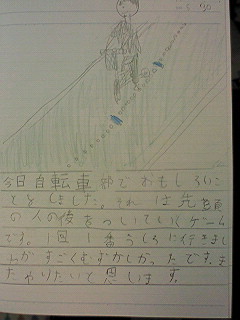 今日自転車部でおもしろいこ
とをしました。それは先頭
の人の後をついていくゲーム
です。1回1番うしろに行きまし
たがすごくむずかしかったです。ま
たやりたいと思います。